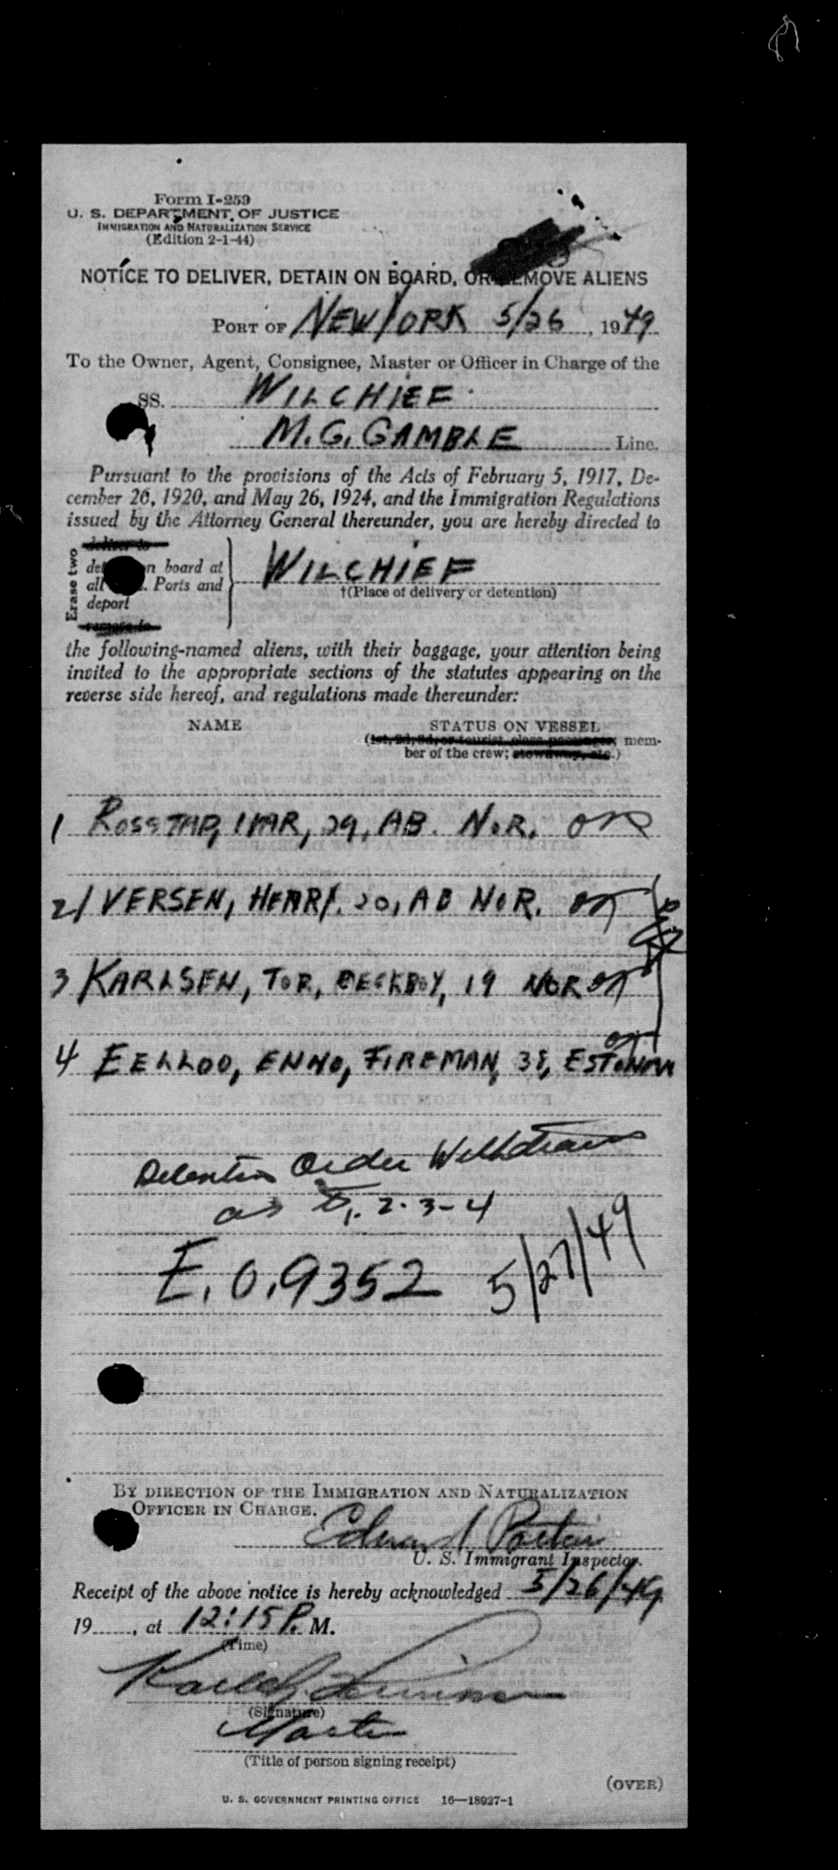 Form I-259
U. S. DEPARTMENT OF JUSTICE
IMMIGRATION AND NATURALIZATION SERVICE
(Edition 2-1-44)
NOTICE TO DELIVER, DETAIN ON BOARD, OR REMOVE ALIENS
PORT OF NEW YORK 5/26, 1949
To the Owner, Agent, Consignee, Master or Officer in Charge of the
SS. WILCHIEF
M. G. GAMBLE Line.
Pursuant to the provisions of the Acts of February 5, 1917, De-
cember 26, 1920, and May 26, 1924, and the Immigration Regulations
issued by the Attorney General thereunder, you are hereby directed to
Erase two
deliver to
n board at WILCHIEF
all Ports and †(Place of delivery or detention)
deport
remove to
the following-named aliens, with their baggage, your attention being
invited to the appropriate sections of the statutes appearing on the
reverse side hereof, and regulations made thereunder:
NAME STATUS ON VESSEL
(1st, 2d, 3d, or tourist class passenger; mem-
ber of the crew; stowaway, etc.)
1 IVAR, 29, AB. NOR.
2 IVERSEN, HENRY. 20, AB NOR.
3 KARLSEN, TOR, DECKBOY, 19 NOR
4 EELLOO, ENNO, FIREMAN, 38, ESTONIAN
Detention Order Withdrawn
as to 1. 2. 3-4
E. O. 9352 5/27/49
BY DIRECTION OF THE IMMIGRATION AND NATURALIZATION
OFFICER IN CHARGE.
Edward
U. S. Immigrant Inspector.
Receipt of the above notice is hereby acknowledged 5/26/49
19......, at 12:15 P. M.
(Time)
(Signature)
Master
(Title of person signing receipt)
(OVER)
U. S. GOVERNMENT PRINTING OFFICE 16—18927-1